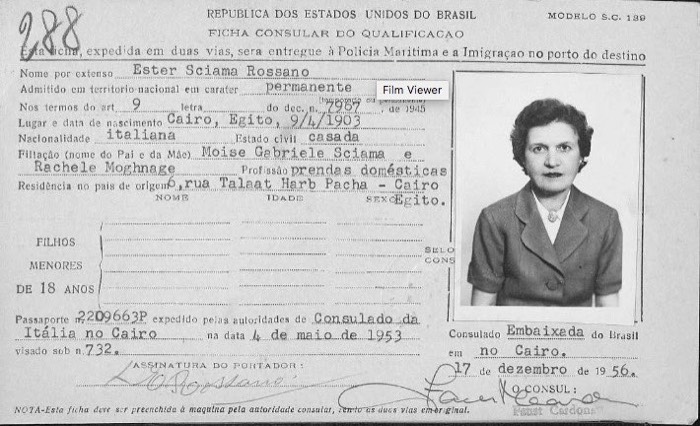 288
REPÚBLICA DOS ESTADOS UNIDOS DO BRASIL
MODELO S.C. 139
FICHA CONSULAR DO QUALIFICAÇÃO
Esta ficha, expedida em duas vias, sera entregue à Policia Maritima e a Imigração no porto do destino
Nome por extenso Ester Sciama Rossano
Admitido em territorio nacional em carater permanente
Film Viewer
Nos termos do art 9 letra do dec. n. 7967, de 1945
Lugar e data de nascimento Cairo, Egito, 9/4/1903
Nacionalidade italiana Estado civil casada
Filitação (nome do Pai e da Mãe) Moise Gabriele Sciama e
Rachele Moghnage Profissão prendas domésticas
Residência no pais de origem 6, rua Talaat Harb Pacha - Cairo
NOME IDADE SEXO Egito.
FILHOS
MENORES
DE 18 ANOS
SELO
CONS
Passaporte n. 2209663P expedido pelas autoridades de Consulado da
Itália no Cairo na data 4 de maio de 1953
visado sob n. 732.
Consulado Embaixada do Brasil
em no Cairo.
17 de dezembro de 1956.
ASSINATURA DO PORTADOR:
Rossano
O CONSUL:
Faust Cardona
NOTA-Esta ficha deve ser preenchida à maquina pela autoridade consular, sendo as duas vias em original.